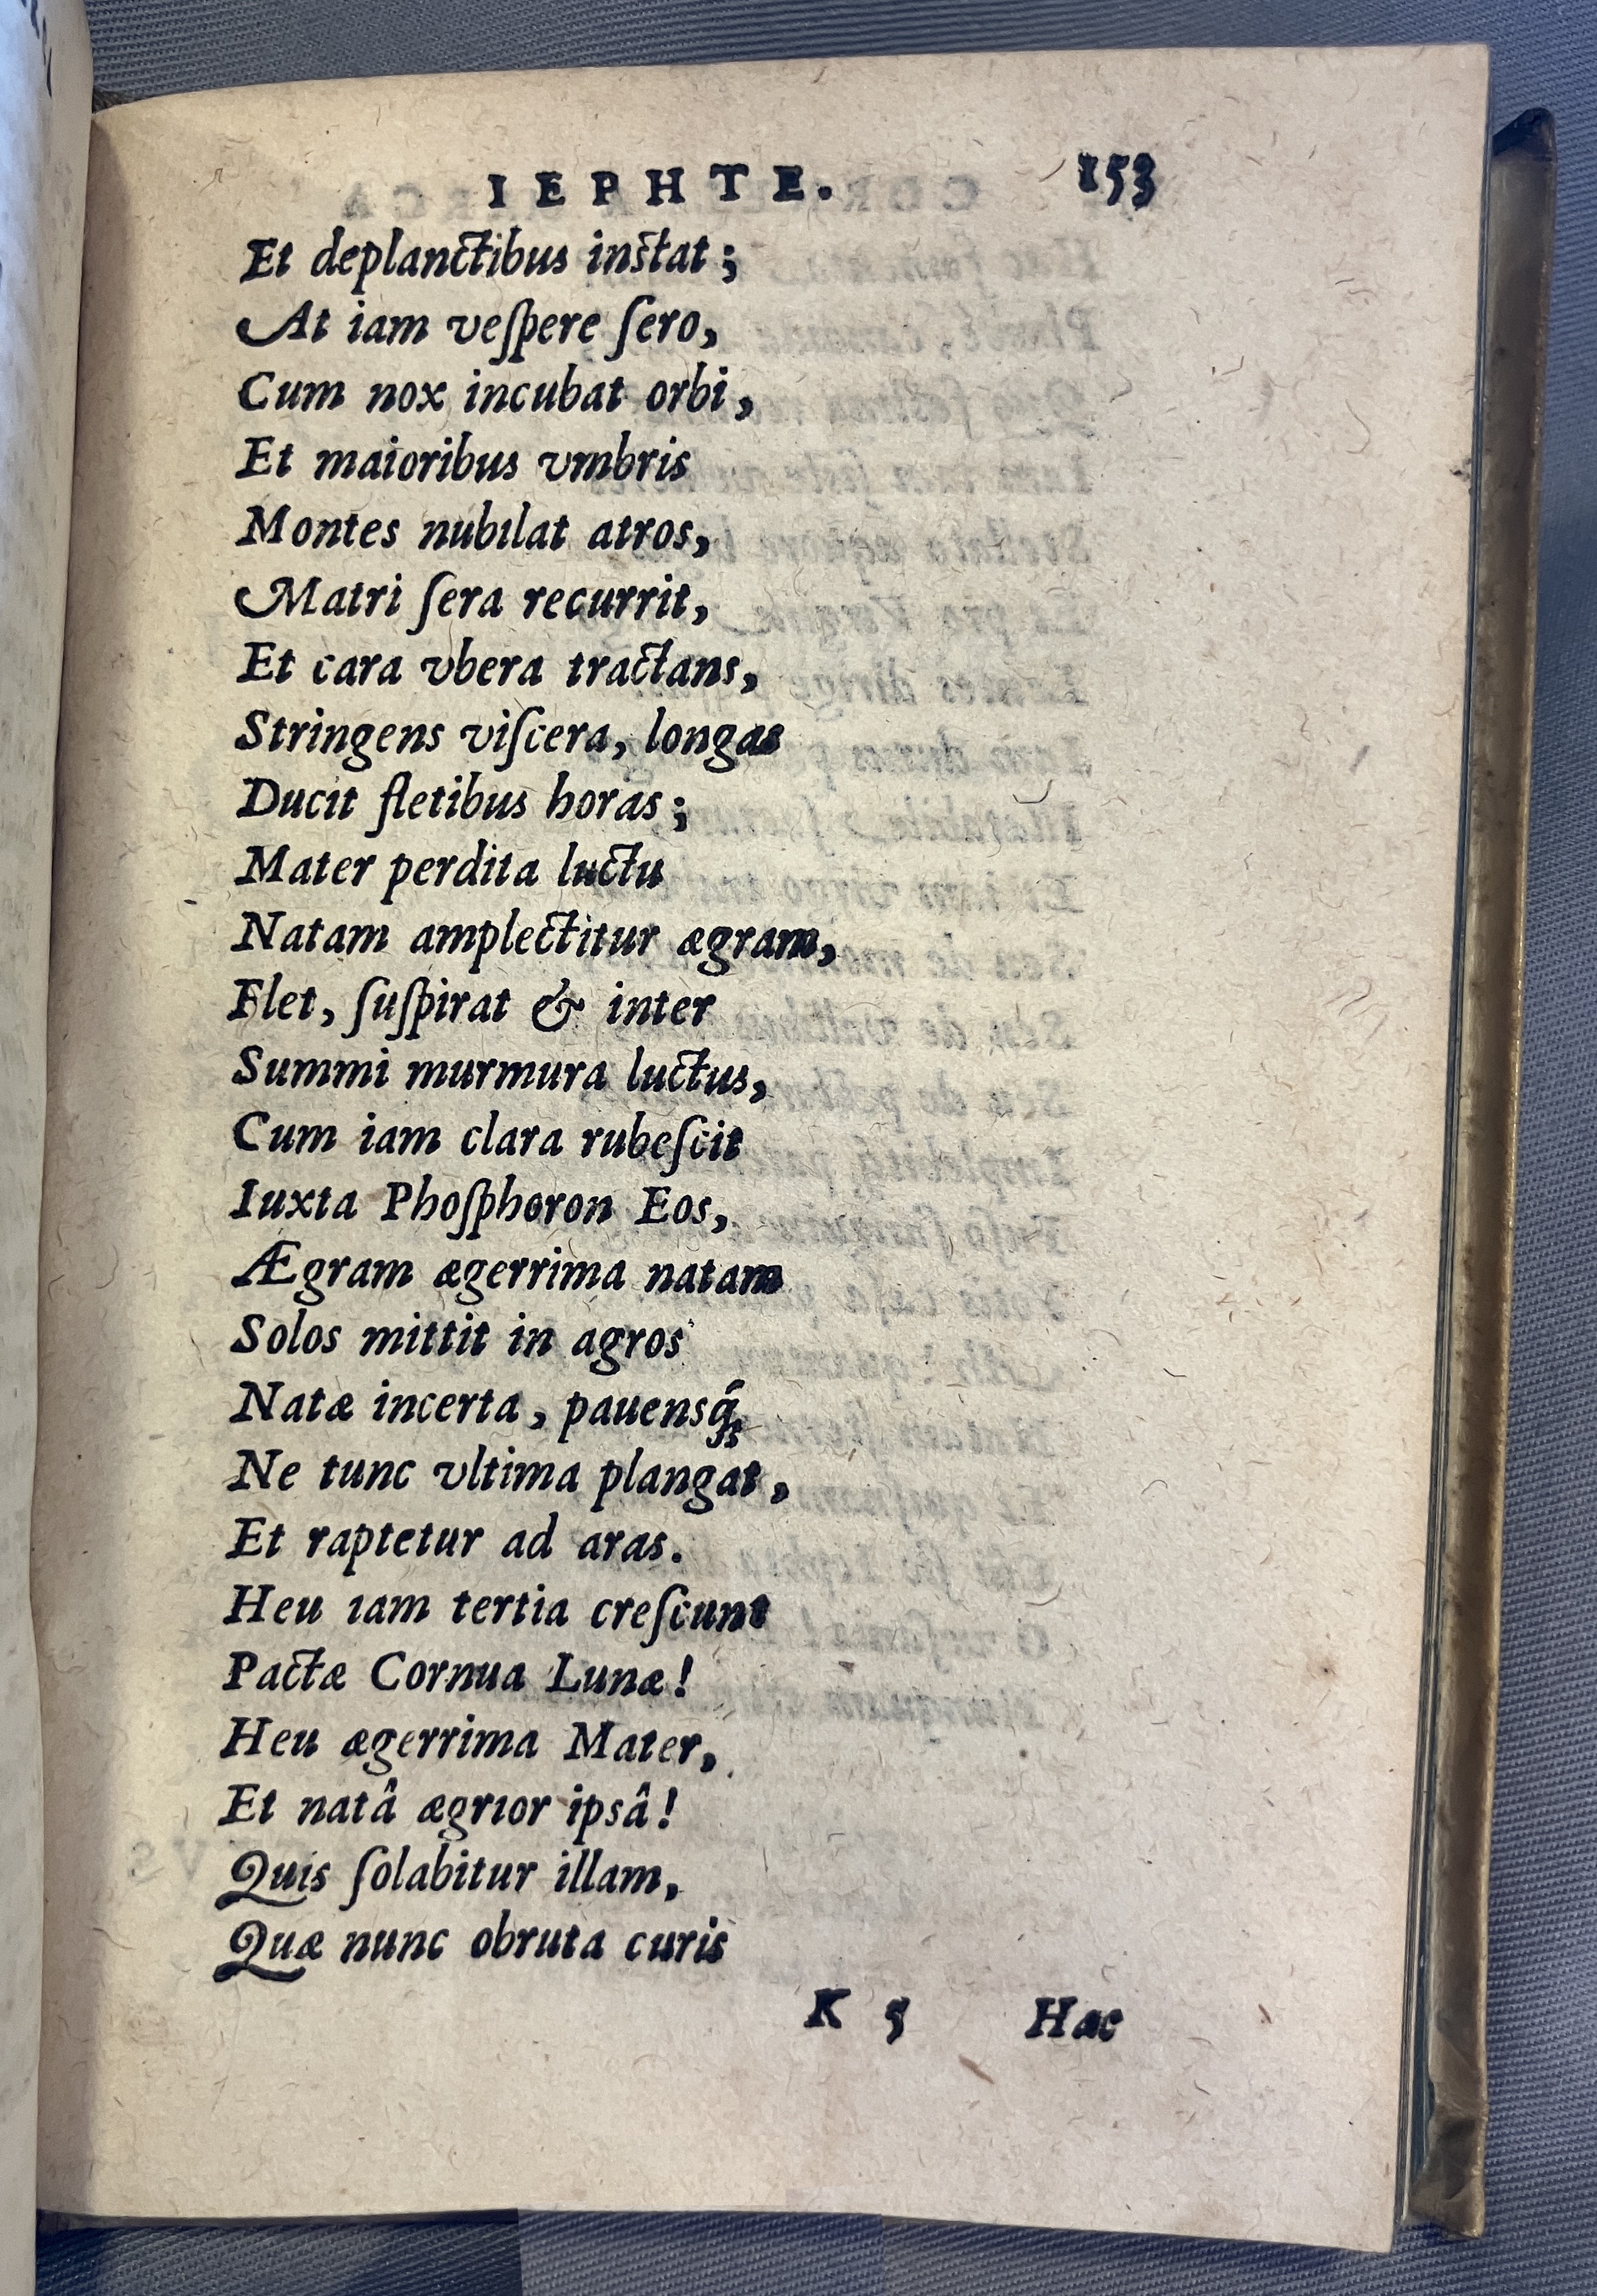 IEPHTE. 153
Et deplanctibus instat;
At iam veſpere ſero,
Cum nox incubat orbi,
Et maioribus vmbris
Montes nubilat atros,
Matri ſera recurrit,
Et cara vbera tractans,
Stringens viſcera, longas
Ducit fletibus horas;
Mater perdita luctu
Natam amplectitur ægram,
Flet, ſuſpirat & inter
Summi murmura luctus,
Cum iam clara rubeſcit
Iuxta Phoſphoron Eos,
Ægram ægerrima natam
Solos mittit in agros
Natæ incerta, pauensq́;
Ne tunc vltima plangat,
Et raptetur ad aras.
Heu iam tertia creſcunt
Pactæ Cornua Lunæ!
Heu ægerrima Mater,
Et natâ ægrior ipsâ!
Quis ſolabitur illam,
Quæ nunc obruta curis
K 5 Hac